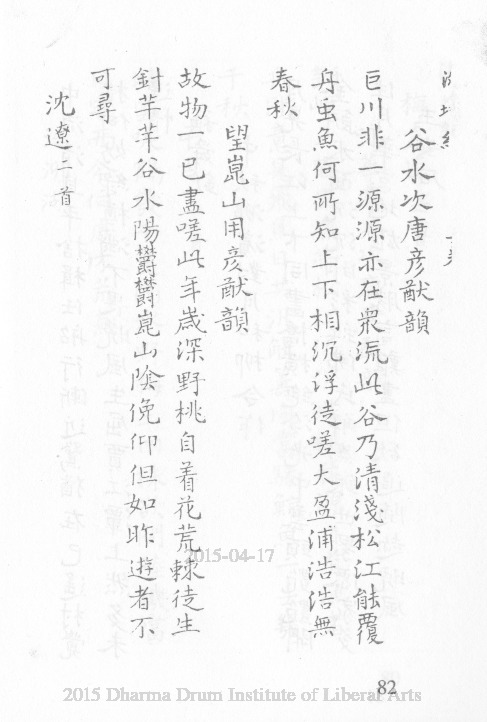 谷水次唐彥猷韻
巨川非一源源亦在衆流此谷乃清淺松江能覆
舟虫魚何所知上下相沉浮徒嗟大盈浦浩浩無
春秋
望崑山用彦猷韻
故物一已盡嗟此年歲深野桃自着花荒棘徒生
針芊芊谷水陽欝欝崑山陰俛仰但如昨遊者不
可尋
沈遼二首
2015-04-17
82
2015 Dharma Drum Institute of Liberal Arts